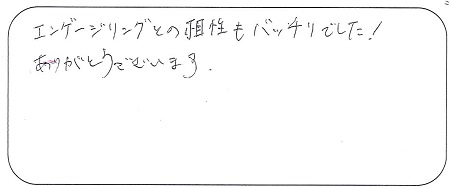 エンゲージリングとの相性もバッチリでした!
ありがとうございます.